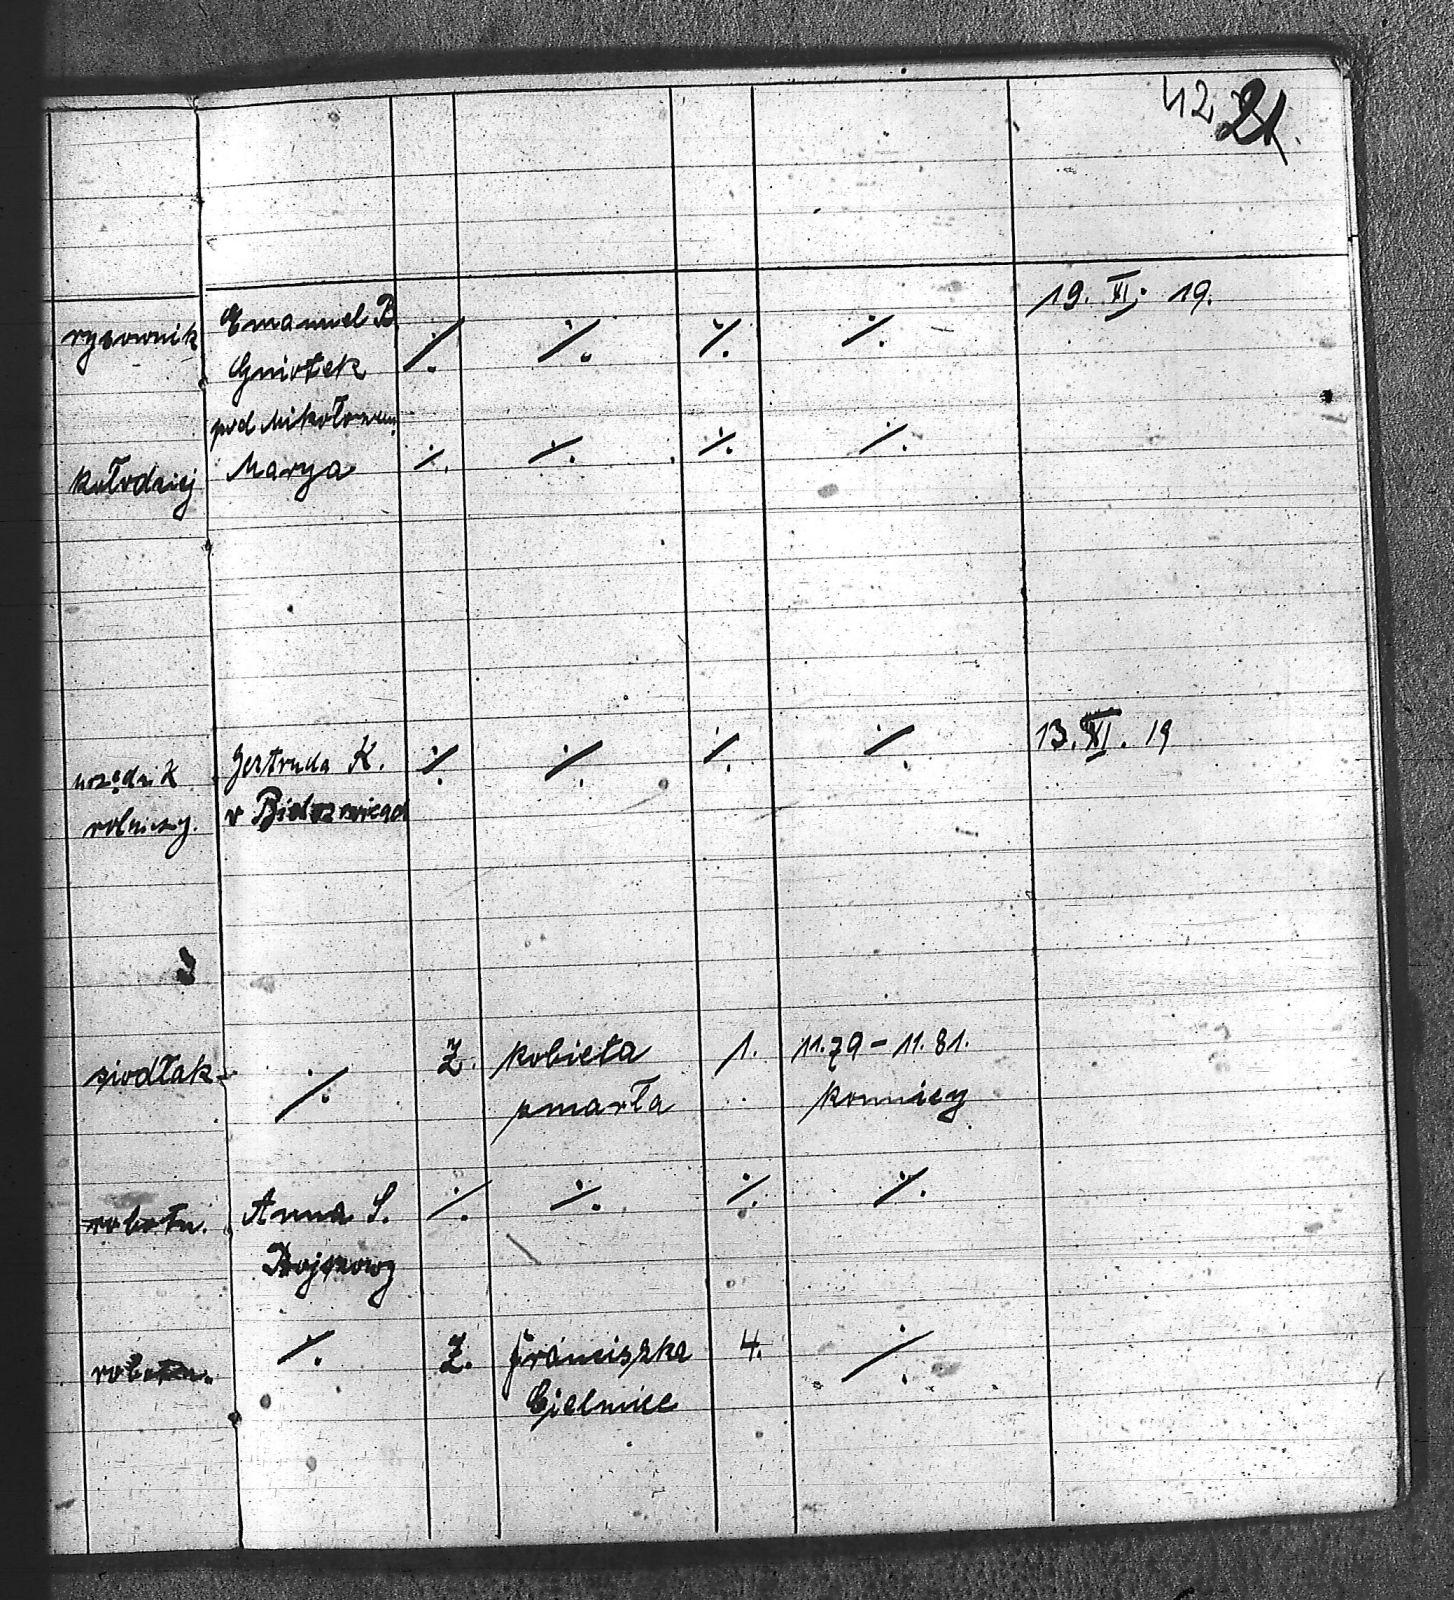 42 21.
19. XI. 19.
rysownik Emanuel B ·/. ·/. ·/. ·/.
Gniotek
pod Mikołowem
kołodziej Marya ·/. ·/. ·/. ·/.
13. XI. 19
urzędnik Gertruda K. ·/. ·/. ·/. ·/.
rolniczy. v
siodłak ·/. Ż. kobieta 1. 11.79 – 11.81.
umarła konnicy
robotn. Anna S. ·/. ·/. ·/. ·/.
Bojszowy
robotn. ·/. Ż. Franciszka 4. ·/.
Gielnice